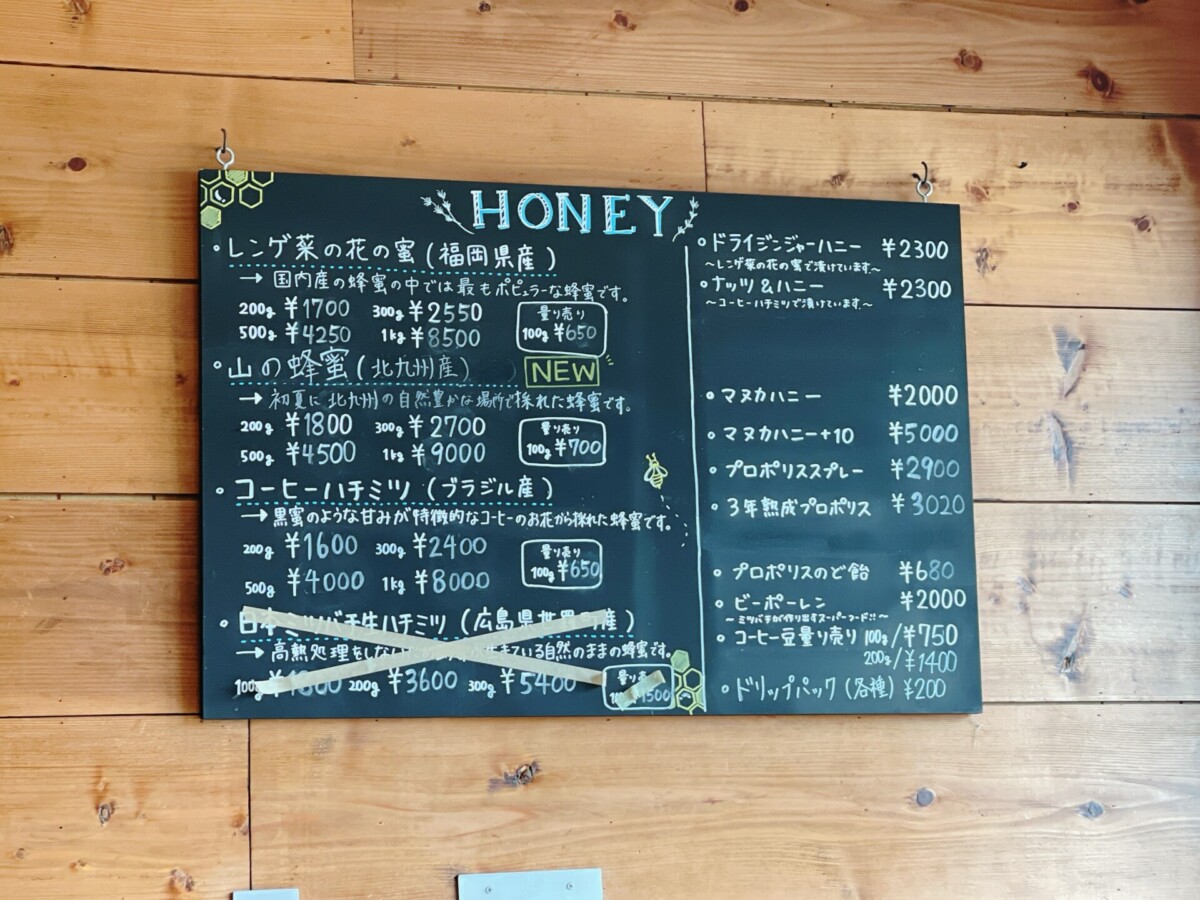 HONEY
・レンゲ菜の花の蜜(福岡県産)
→国内産の蜂蜜の中では最もポピュラーな蜂蜜です。
200g ¥1700 300g ¥2550
500g ¥4250 1kg ¥8500
量り売り
100g ¥650
・山の蜂蜜(北九州産)
NEW
→初夏に北九州の自然豊かな場所で採れた蜂蜜です。
200g ¥1800 300g ¥2700
500g ¥4500 1kg ¥9000
量り売り
100g ¥700
・コーヒーハチミツ(ブラジル産)
→黒蜜のような甘みが特徴的なコーヒーのお花から採れた蜂蜜です。
200g ¥1600 300g ¥2400
500g ¥4000 1kg ¥8000
量り売り
100g ¥650
・日本ミツバチ生ハチミツ(広島県世羅町産)
→高熱処理をしない 生きている自然のままの蜂蜜です。
100g ¥1800 200g ¥3600 300g ¥5400
量り売り
¥1500
・ドライジンジャーハニー ¥2300
〜レンゲ菜の花の蜜で漬けています。〜
・ナッツ&ハニー ¥2300
〜コーヒーハチミツで漬けています。〜
・マヌカハニー ¥2000
・マヌカハニー+10 ¥5000
・プロポリススプレー ¥2900
・3年熟成プロポリス ¥3020
・プロポリスのど飴 ¥680
・ビーポーレン ¥2000
〜ミツバチが作り出すスーパーフード!!〜
・コーヒー豆量り売り 100g/¥750
200g/¥1400
・ドリップパック(各種) ¥200